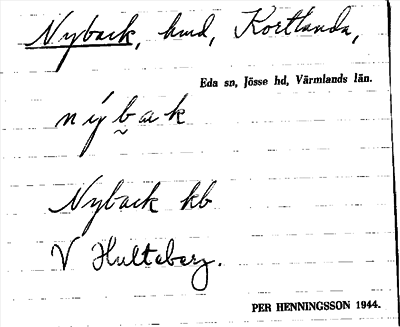 Nyback, hmd, Kortlanda,
Eda sn, Jösse hd, Värmlands län.
nýb̰ak
Nyback kb
V Hulteberg.
PER HENNINGSSON 1944.